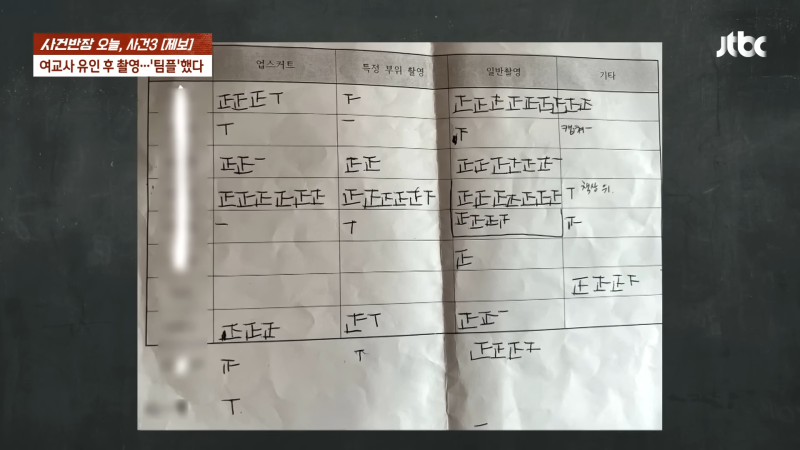 사건반장 오늘, 사건3 [제보]
여교사 유인 후 촬영…'팀플'했다
jtbc
업스커트 특정 부위 촬영 일반촬영 기타
正正正T 下 正正正正正正正正
T 一 下
正正一 正正 正正正正正一
正正正正正正 正正正正正下 正正正正正正正 T 책상 위
一 T 正正正正 下
正
正正正下
正正正 正T 正正一
下 T 正正正下
T
一